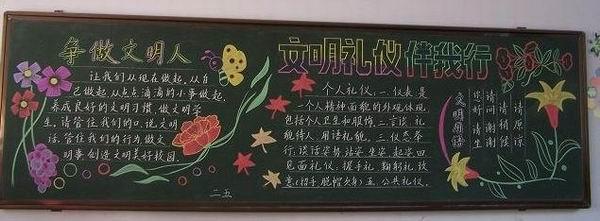 争做文明人
让我们从现在做起,从自
己做起,从点点滴滴的小事做起,
养成良好的文明习惯,做文明学
生,请管住我们的口,说文明
话,管住我们的行为,做文
明事,创造文明美好校园。
二五
文明礼仪伴我行
个人礼仪,一、仪表是
一个人精神面貌的外观体现,
包括个人卫生和服饰,二、言谈、礼
貌待人,用语礼貌。三、仪态举
行:谈话姿势、站姿、坐姿、起姿四、
见面礼仪:握手礼、鞠躬礼、致
意(招手、脱帽、欠身)五、公共礼仪。
文明用语
您好 请坐
请问 谢谢
请稍候
请原谅